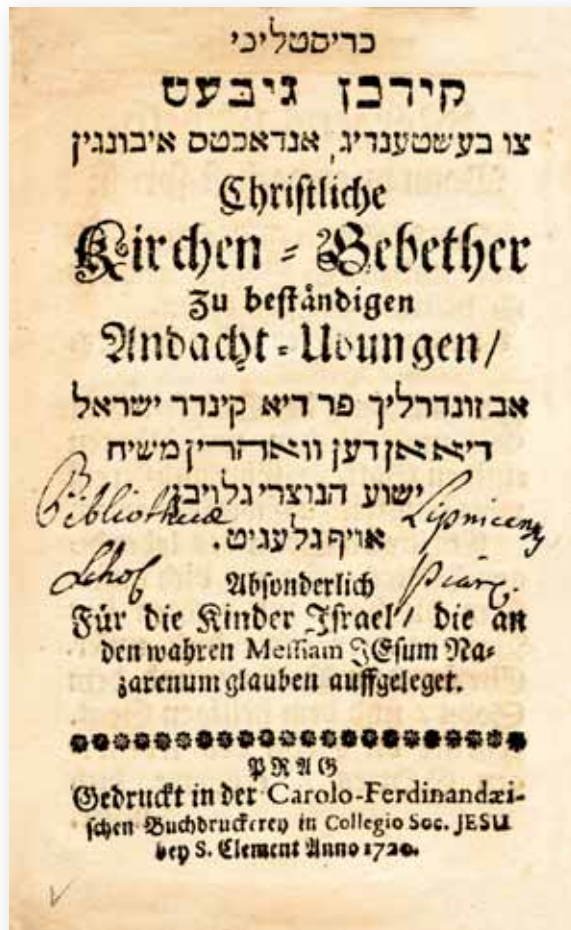 כריסטליכי
קירכן גיבעט
צו בעשטענדיג, אנדאכטס איבונגין
Christliche
Kirchen = Gebether
Zu beständigen
Andacht = Ubungen /
אב זונדרליך פר דיא קינדר ישראל
דיא אן דען וואהרין משיח
ישוע הנוצרי גלויבן
אויף גלעגיט.
Bibliothecæ Lipnicensis
Schol Piar.
Absonderlich
Für die Kinder Israel / die an
den wahren Messiam JEsum Na=
zarenum glauben auffgeleget.
PRAG
Gedruckt in der Carolo-Ferdinandæi-
schen Buchdruckerey in Collegio Soc. JESU
bey S. Clement Anno 1720.